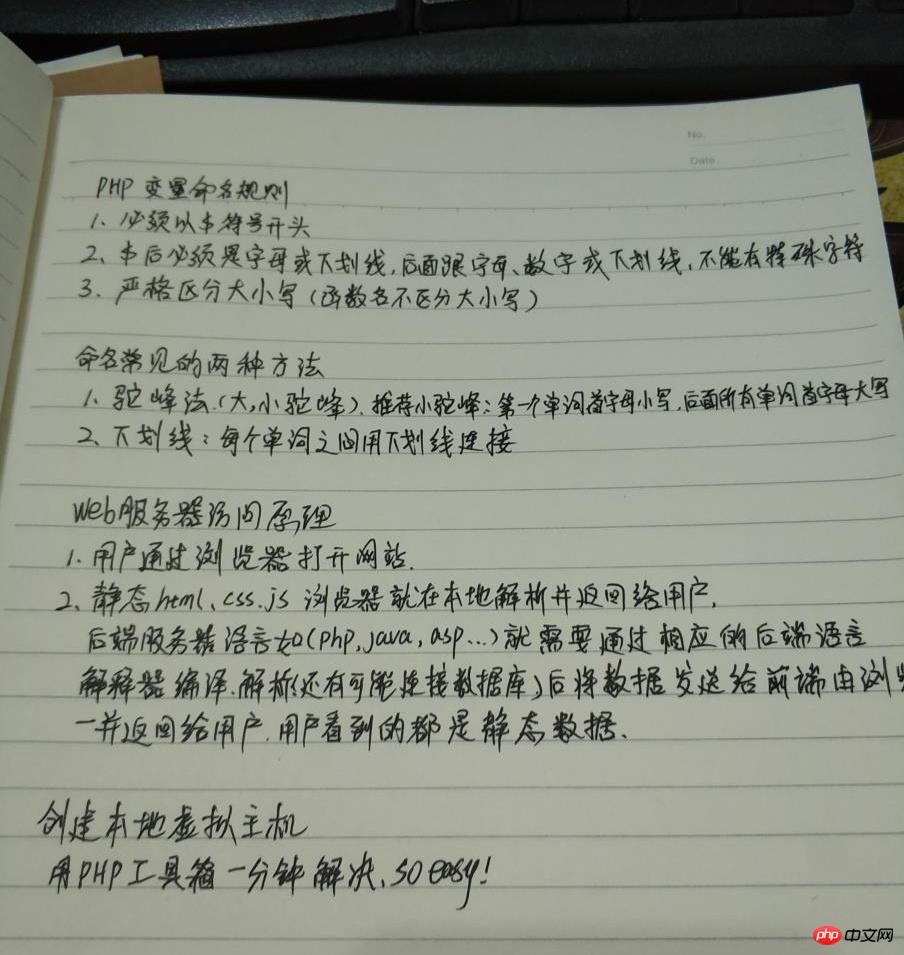 No.
Date
PHP 变量命名规则
1. 必须以$符号开头
2. $后必须是字母或下划线,后面跟字母、数字或下划线,不能有特殊字符
3. 严格区分大小写(函数名不区分大小写)
命名常见的两种方法
1. 驼峰法.(大,小驼峰).推荐小驼峰:第一个单词首字母小写,后面所有单词首字母大写
2. 下划线:每个单词之间用下划线连接
web服务器访问原理
1. 用户通过浏览器打开网站.
2. 静态html、css.js 浏览器就在本地解析并返回给用户,
后端服务器语言如(php,java,asp...)就需要通过相应的后端语言
解释器编译.解析(还有可能连接数据库)后将数据发送给前端由浏
一并返回给用户.用户看到的都是静态数据.
创建本地虚拟主机
用PHP工具箱一分钟解决、so easy!
php 中文网